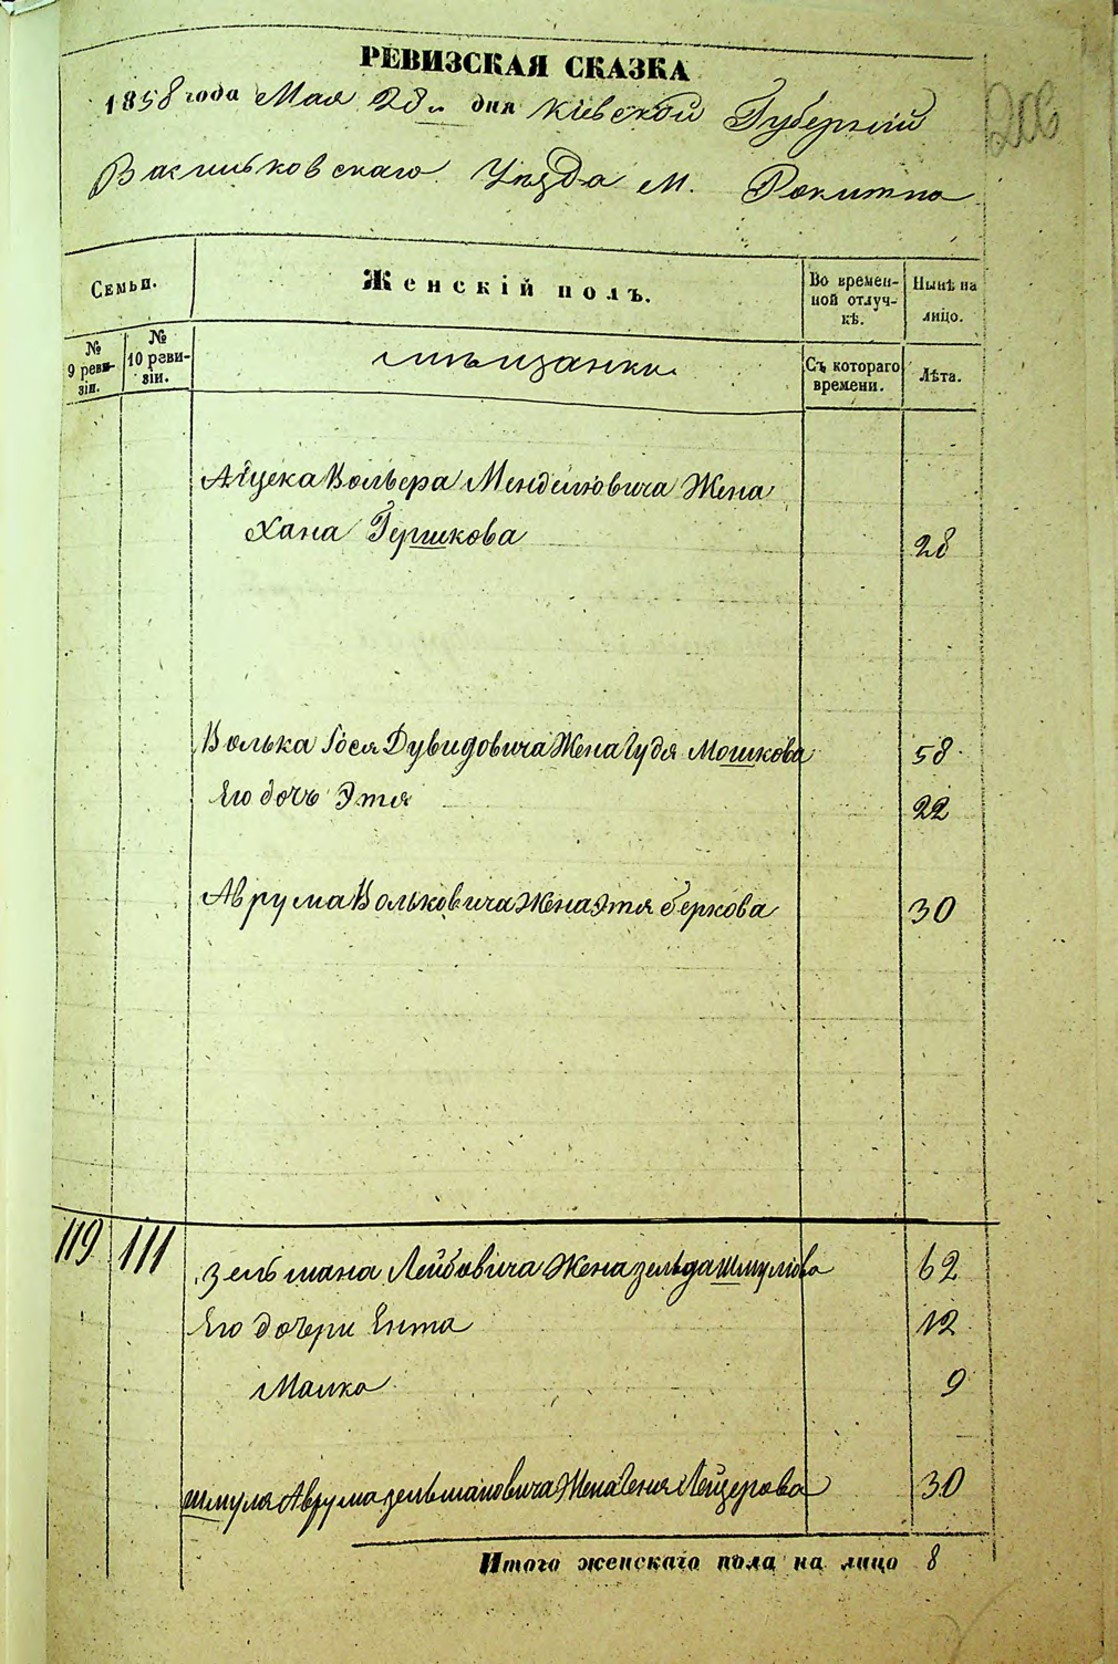 РЕВИЗСКАЯ СКАЗКА
1858 года Мая 28 дня Кіевской Губерніи
Васильковскаго Уѣзда М. Рокитна
206
Семьи.
Женскій полъ.
Во времен-
ной отлуч-
кѣ.
Нынѣ на
лицо.
№
9 реви-
зіи.
№
10 реви-
зіи.
мѣщанки
Съ котораго
времени.
Лѣта.
Айцека Вольвера Менделювича Жена
Хана Гершкова 28
Волька Іося Дувидовича Жена Гудя Мошкова 58
Его дочь Этя 22
Аврума Вольковича Жена Этя Беркова 30
119 111 Зельмана Лейбовича Жена Зельда Шмулюва 62
Его дочери Ента 12
Малка 9
Шмуля Аврума Зельмановича Жена Геня Лейзерова 30
Итого женскаго пола на лицо 8